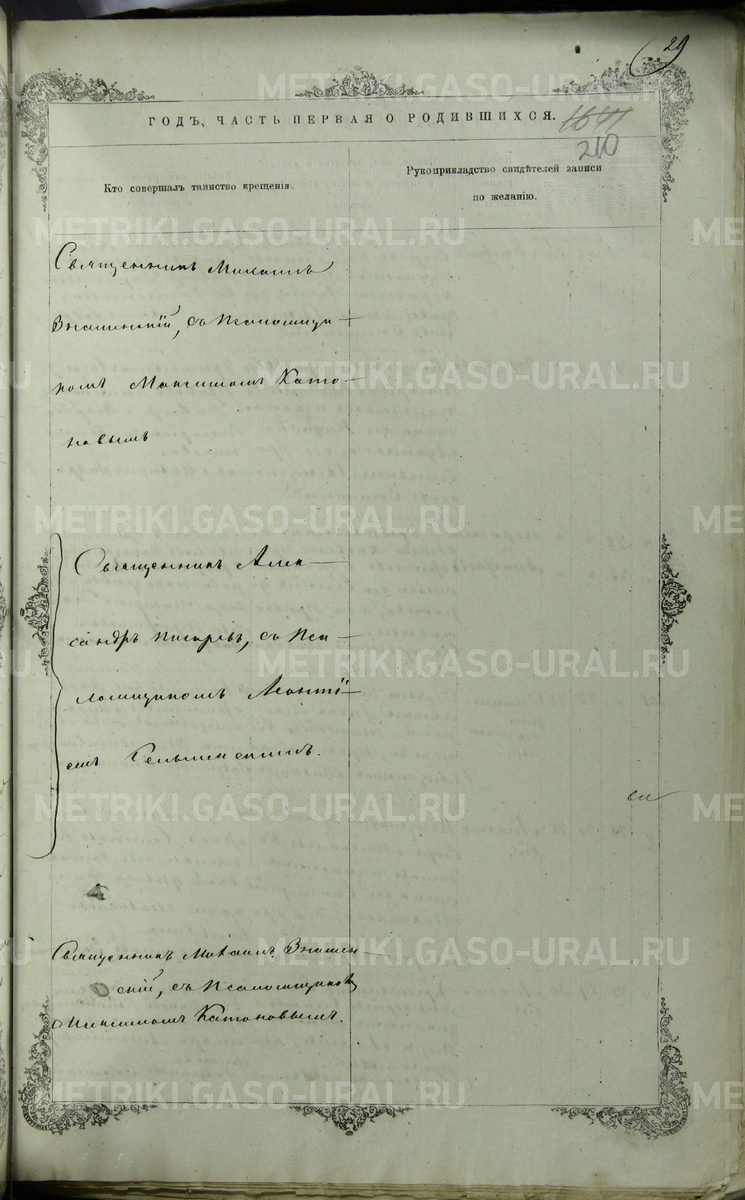 29
ГОДЪ, ЧАСТЬ ПЕРВАЯ О РОДИВШИХСЯ.
210
Кто совершалъ таинство крещенія.
Рукоприкладство свидѣтелей записи
по желанію.
Священникъ Михаилъ
Знаменскій, съ Псаломщи-
комъ Максимомъ Като-
новымъ
Священникъ Алек-
сандръ Писаревъ, съ Пса-
ломщикомъ Леонті-
емъ
Священникъ Михаилъ Знамен-
скій, съ Псаломщикомъ
Максимомъ Катоновымъ.
METRIKI.GASO-URAL.RU